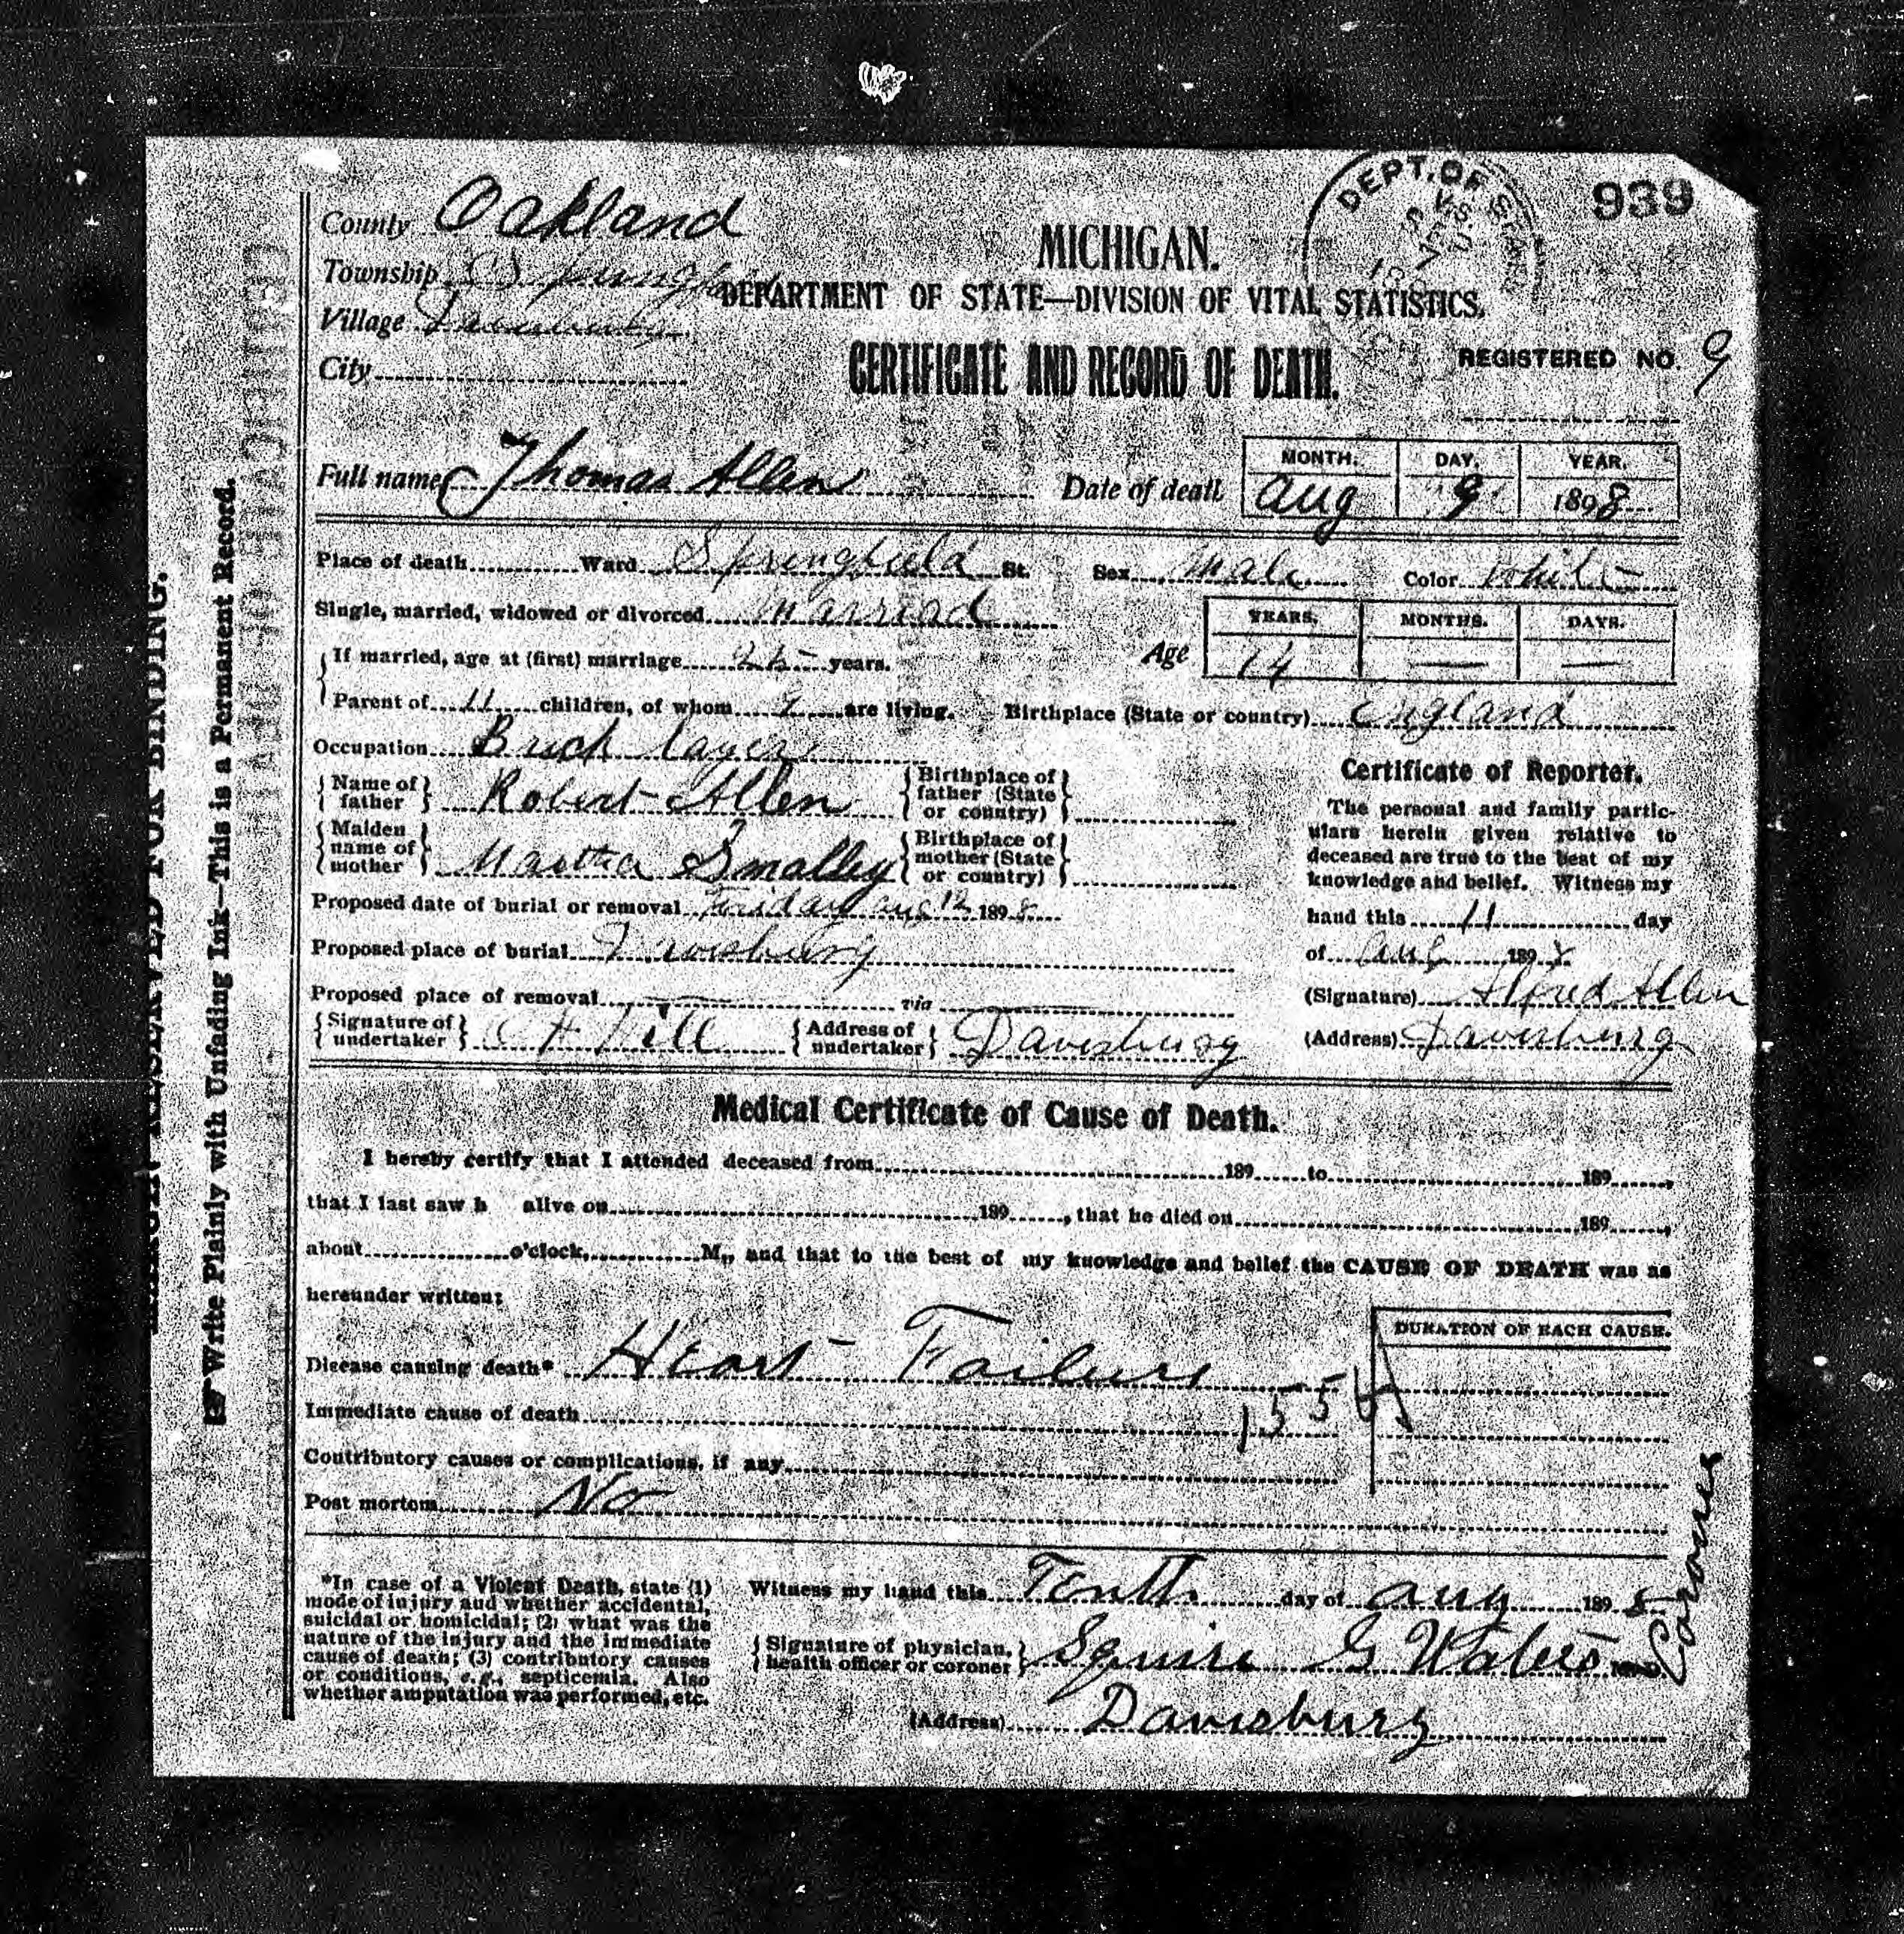 939
DEPT. OF STATE
County Oakland
MICHIGAN.
Township Springfield
DEPARTMENT OF STATE—DIVISION OF VITAL STATISTICS.
Village Davisburg
City
CERTIFICATE AND RECORD OF DEATH.
REGISTERED NO. 9
Full name Thomas Allen Date of death
MONTH. DAY. YEAR.
Aug 9 1898
Place of death Ward Springfield St. Sex Male Color White
Single, married, widowed or divorced married
If married, age at (first) marriage 25 years.
Age
YEARS. MONTHS. DAYS.
74 — —
Parent of 11 children, of whom 9 are living. Birthplace (State or country) England
Occupation Brick layer
Name of father Robert Allen Birthplace of father (State or country)
Maiden name of mother Martha Smalley Birthplace of mother (State or country)
Proposed date of burial or removal Friday Aug 12 1898
Proposed place of burial Davisburg
Proposed place of removal — via —
Signature of undertaker Hill Address of undertaker Davisburg
Certificate of Reporter.
The personal and family partic-
ulars herein given relative to
deceased are true to the best of my
knowledge and belief. Witness my
hand this 11 day
of Aug 1898.
(Signature) Alfred Allen
(Address) Davisburg
Medical Certificate of Cause of Death.
I hereby certify that I attended deceased from 189 to 189 ,
that I last saw h alive on 189 , that he died on 189 ,
about o'clock, M., and that to the best of my knowledge and belief the CAUSE OF DEATH was as
hereunder written:
DURATION OF EACH CAUSE.
Disease causing death* Heart Failure
155
Immediate cause of death
Contributory causes or complications, if any
Post mortem No
*In case of a Violent Death, state (1)
mode of injury and whether accidental,
suicidal or homicidal; (2) what was the
nature of the injury and the immediate
cause of death; (3) contributory causes
or conditions, e.g., septicemia. Also
whether amputation was performed, etc.
Witness my hand this Tenth day of Aug 1898
Signature of physician, health officer or coroner Squire G Waters
Coroner
(Address) Davisburg
MARGIN RESERVED FOR BINDING.
☞ Write Plainly with Unfading Ink—This is a Permanent Record.